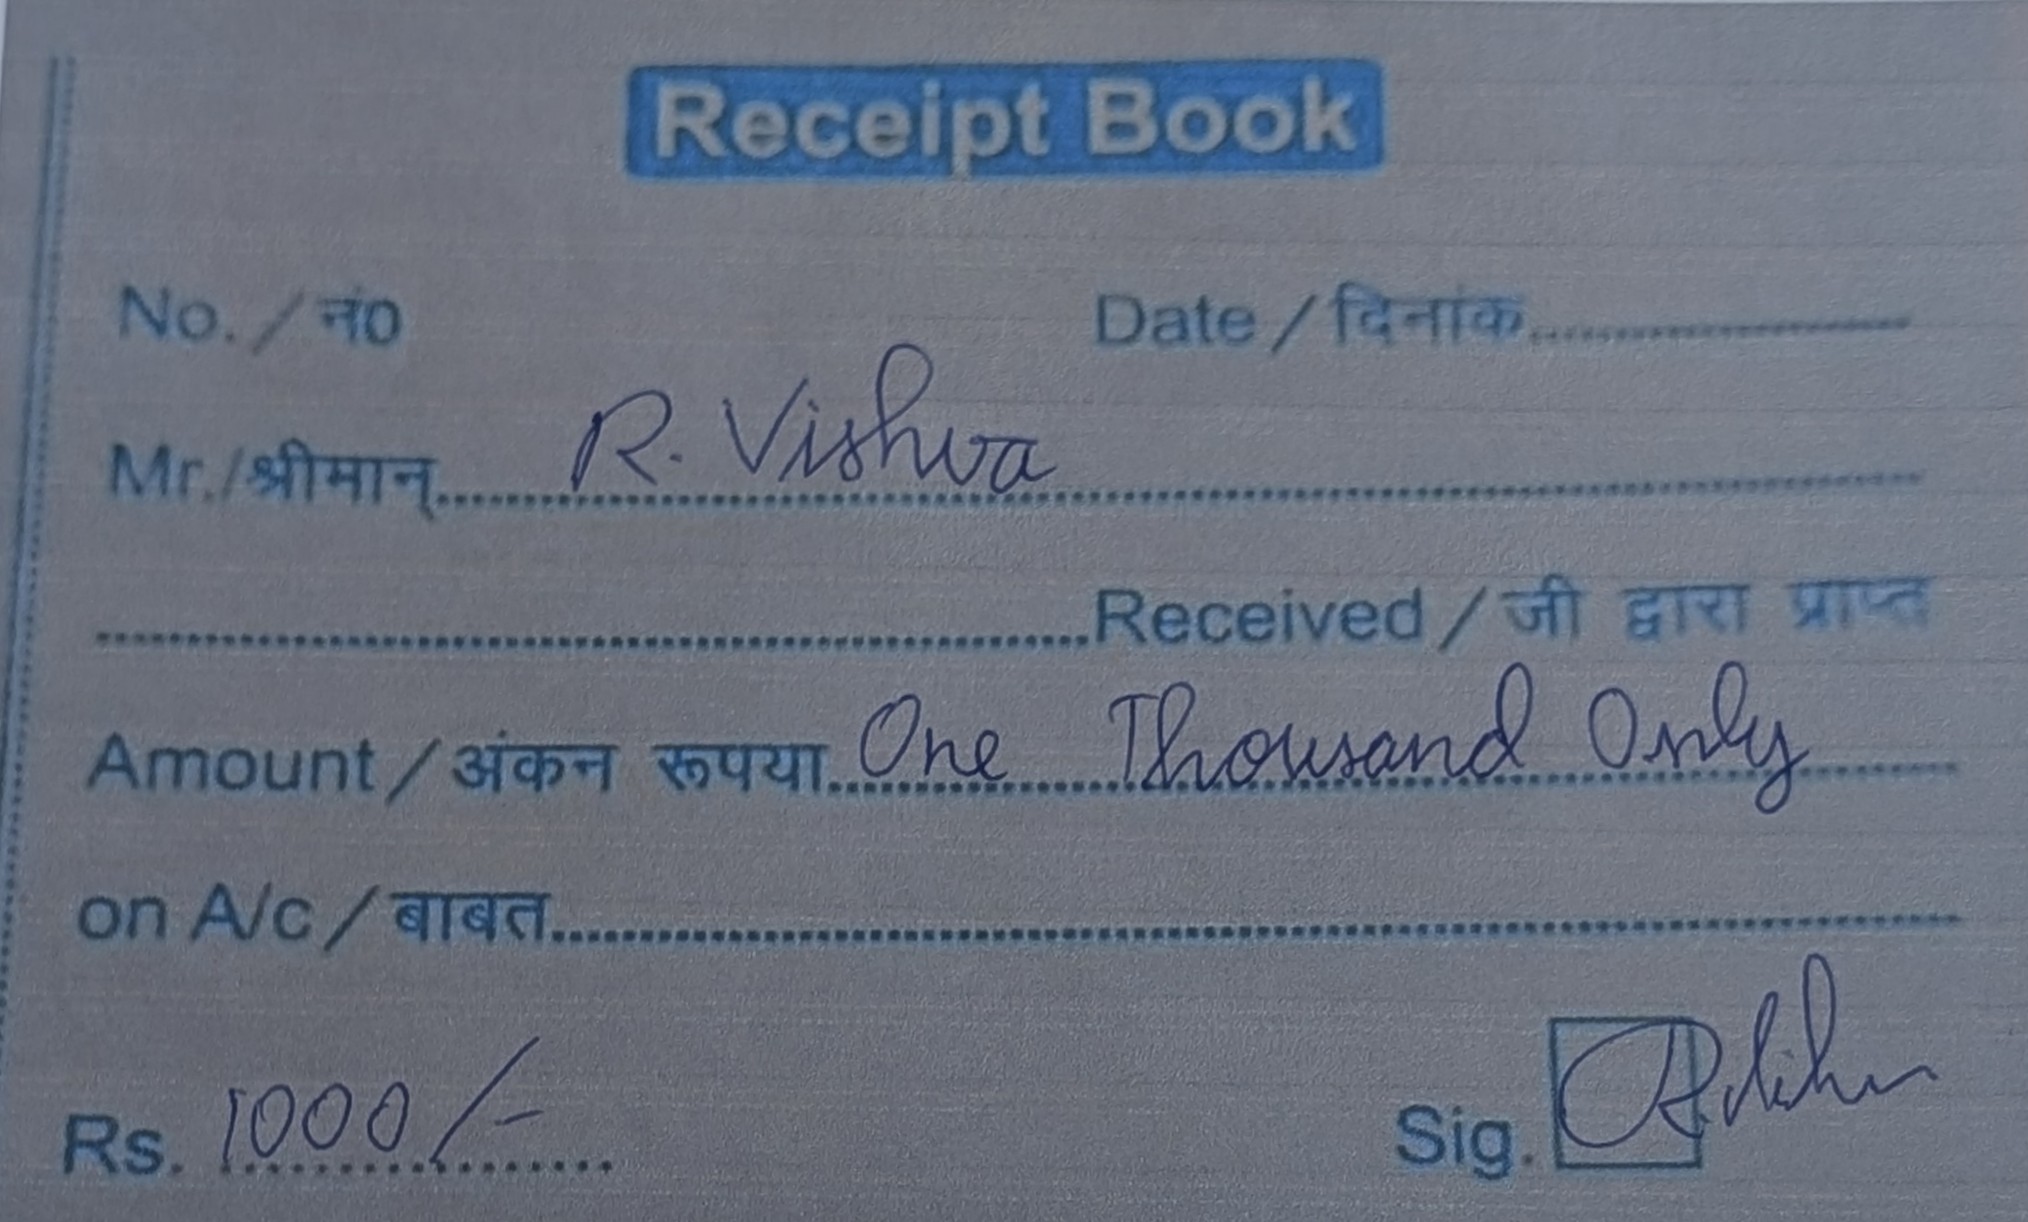 Receipt Book
No. / नं0 Date / दिनांक
Mr./श्रीमान् R. Vishva
Received / जी द्वारा प्राप्त
Amount / अंकन रूपया One Thousand Only
on A/c / बाबत
Rs. 1000/- Sig.